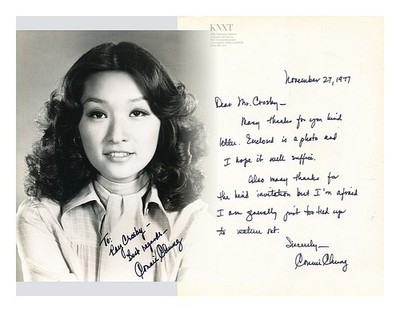 To:
Ray Crosby –
Best regards –
Connie Chung
KNXT
November 27, 1977
Dear Mr. Crosby –
Many thanks for your kind
letter. Enclosed is a photo and
I hope it will suffice.
Also many thanks for
the kind invitation but I'm afraid
I am generally just too tied up
to venture out.
Sincerely –
Connie Chung